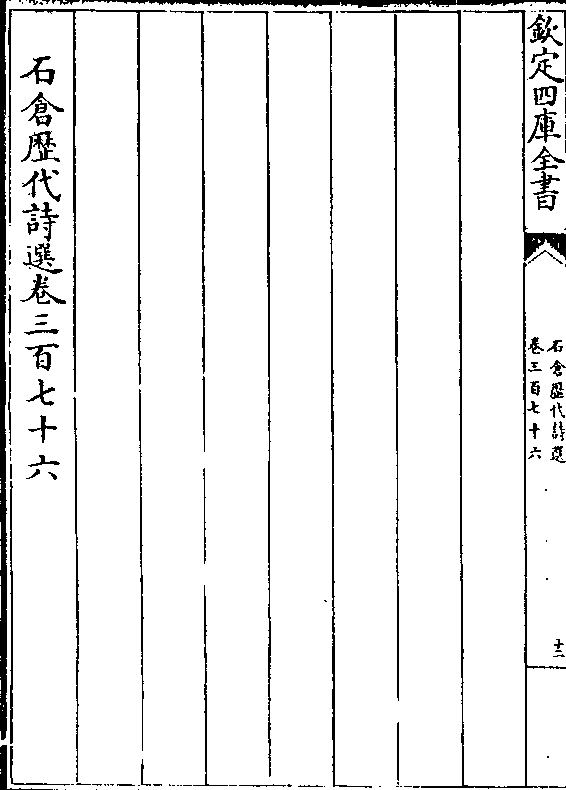 欽定四庫全書
石倉歷代詩選
卷三百七十六
十二
石倉歷代詩選卷三百七十六